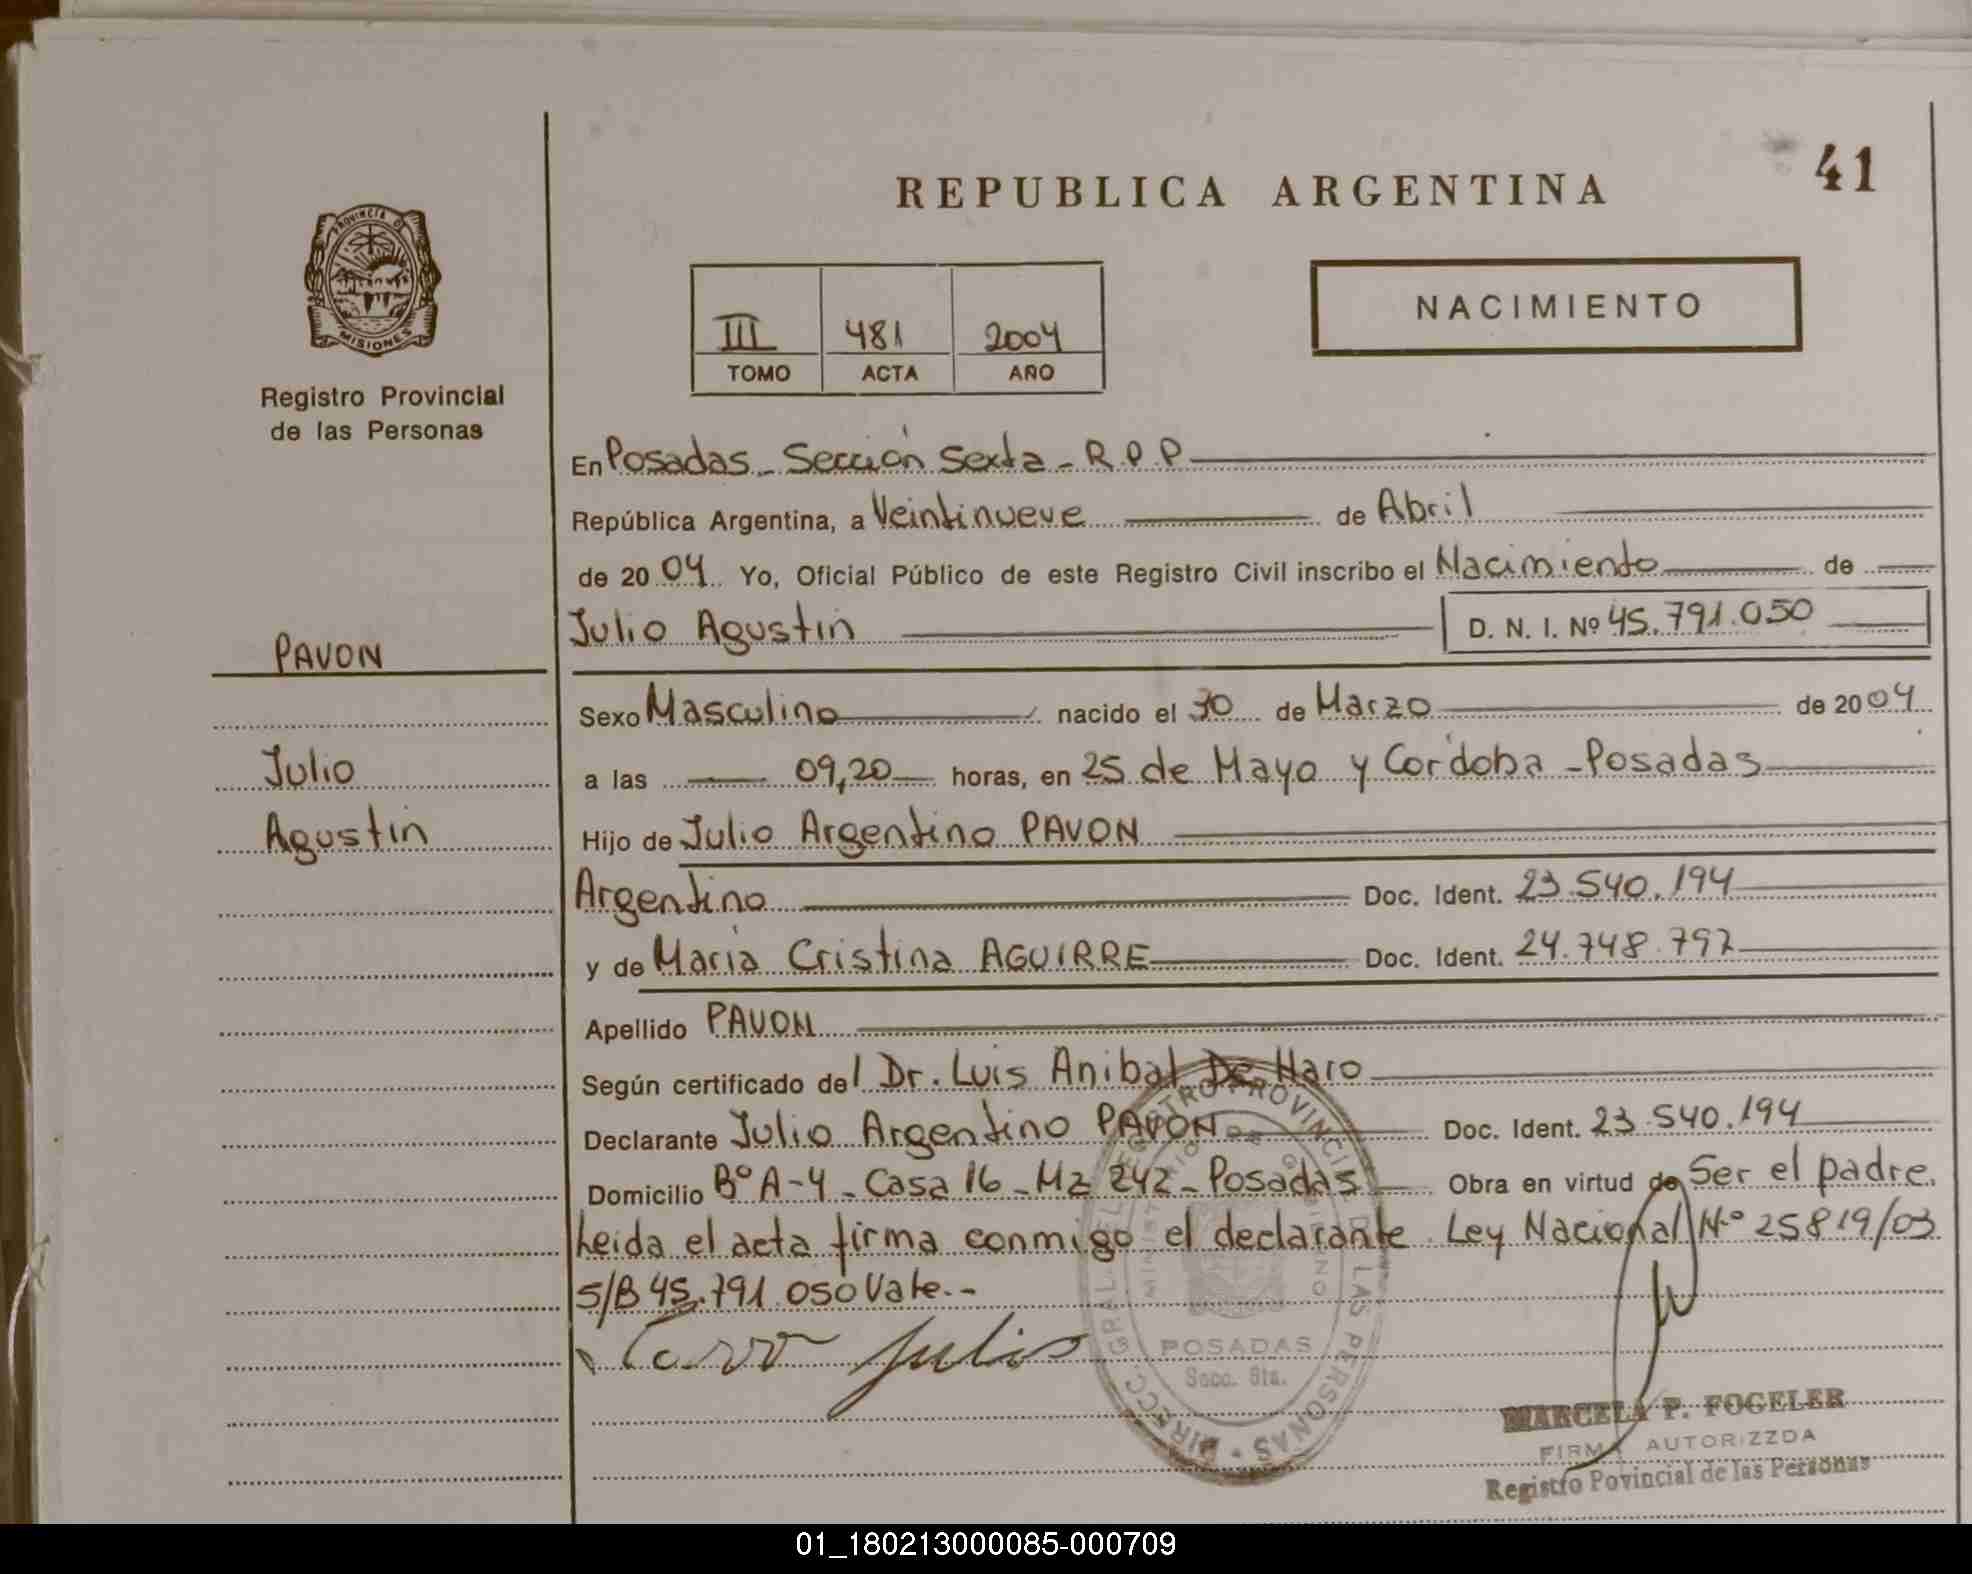 REPUBLICA ARGENTINA
41
PROVINCIA D
MISIONES
Registro Provincial
de las Personas
III 481 2004
TOMO ACTA AÑO
NACIMIENTO
En Posadas - Sección Sexta - R.P.P
República Argentina, a Veintinueve de Abril
de 2004 Yo, Oficial Público de este Registro Civil inscribo el Nacimiento de
Julio Agustin D. N. I. Nº 45.791.050
PAVON
Sexo Masculino nacido el 30 de Marzo de 2004
Julio
a las 09,20 horas, en 25 de Mayo y Córdoba - Posadas
Agustin
Hijo de Julio Argentino PAVON
Argentino Doc. Ident. 23.540.194
y de Maria Cristina AGUIRRE Doc. Ident. 24.748.797
Apellido PAVON
Según certificado del Dr. Luis Anibal De Haro
Declarante Julio Argentino PAVON Doc. Ident. 23.540.194
Domicilio Bº A-4 - Casa 16 - Mz 242 - Posadas Obra en virtud de Ser el padre.
Leida el acta firma conmigo el declarante. Ley Nacional Nº 25819/03
S/B 45.791.050 Vale.-
Julio
DIRECC. GRAL. DEL REGISTRO PROVINCIAL DE LAS PERSONAS
MINISTERIO DE GOBIERNO
POSADAS
Secc. 6ta.
MARCELA P. FOGELER
FIRMA AUTORIZZDA
Registro Povincial de las Personas
01_180213000085-000709